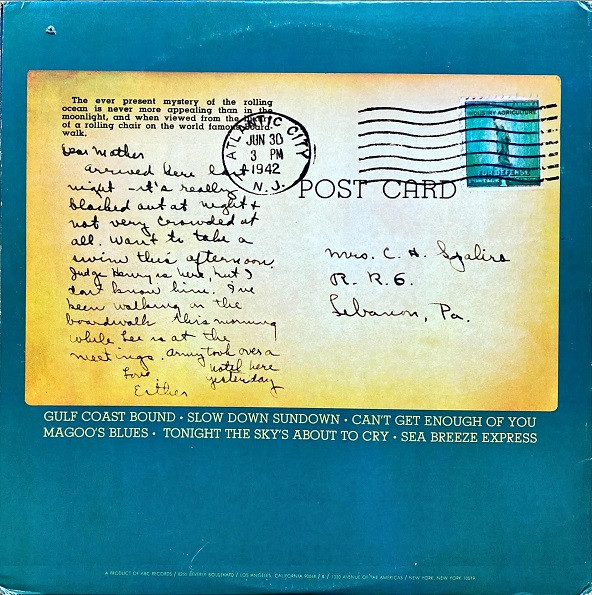 The ever present mystery of the rolling
ocean is never more appealing than in the
moonlight, and when viewed from the
of a rolling chair on the world famous board-
walk.
ATLANTIC CITY
JUN 30
3 PM
1942
N.J.
INDUSTRY AGRICULTURE
FOR DEFENSE
POST CARD
Dear Mother
Arrived here last
night - it's really
blacked out at night &
not very crowded at
all. Want to take a
swim this afternoon.
Judge Henry is here, but I
don't know him. I've
been walking on the
boardwalk this morning
while Lee is at the
meetings. Army took over a
hotel here
yesterday
Love
Esther
Mrs. C. H.
R. R. 6.
Lebanon, Pa.
GULF COAST BOUND • SLOW DOWN SUNDOWN • CAN'T GET ENOUGH OF YOU
MAGOO'S BLUES • TONIGHT THE SKY'S ABOUT TO CRY • SEA BREEZE EXPRESS
A PRODUCT OF ABC RECORDS / 8255 BEVERLY BOULEVARD / LOS ANGELES, CALIFORNIA 90048 / & / 1330 AVENUE OF THE AMERICAS / NEW YORK, NEW YORK 10019